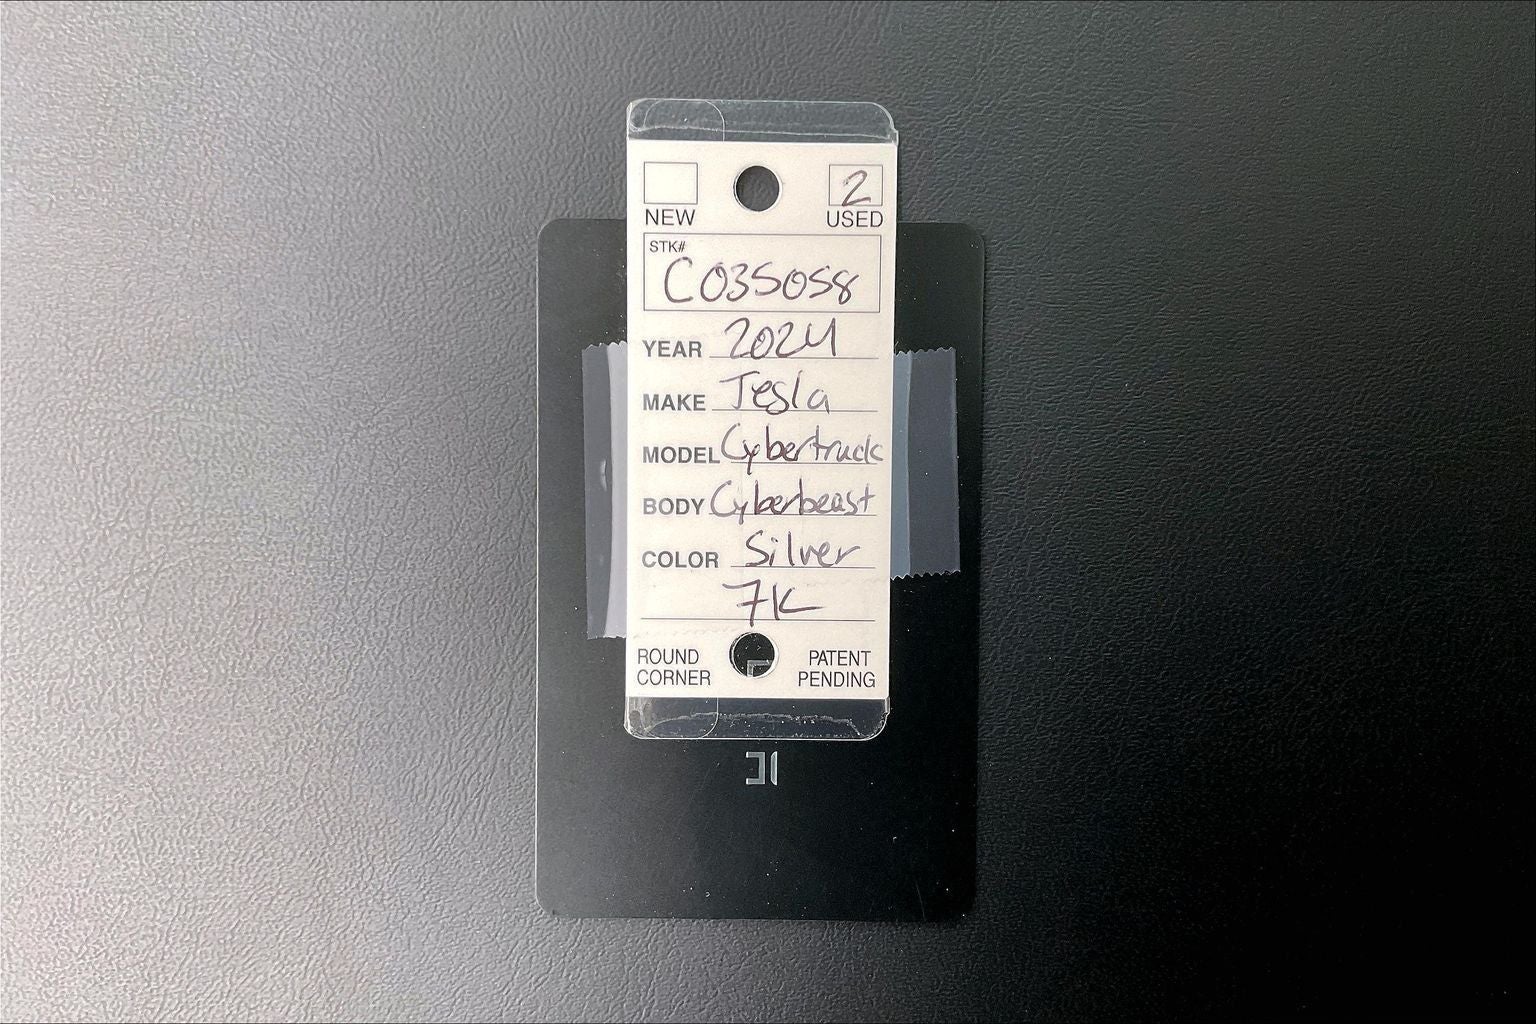 2
NEW USED
STK#
C035058
YEAR 2024
MAKE Tesla
MODEL Cybertruck
BODY Cyberbeast
COLOR Silver
7K
ROUND CORNER
PATENT PENDING